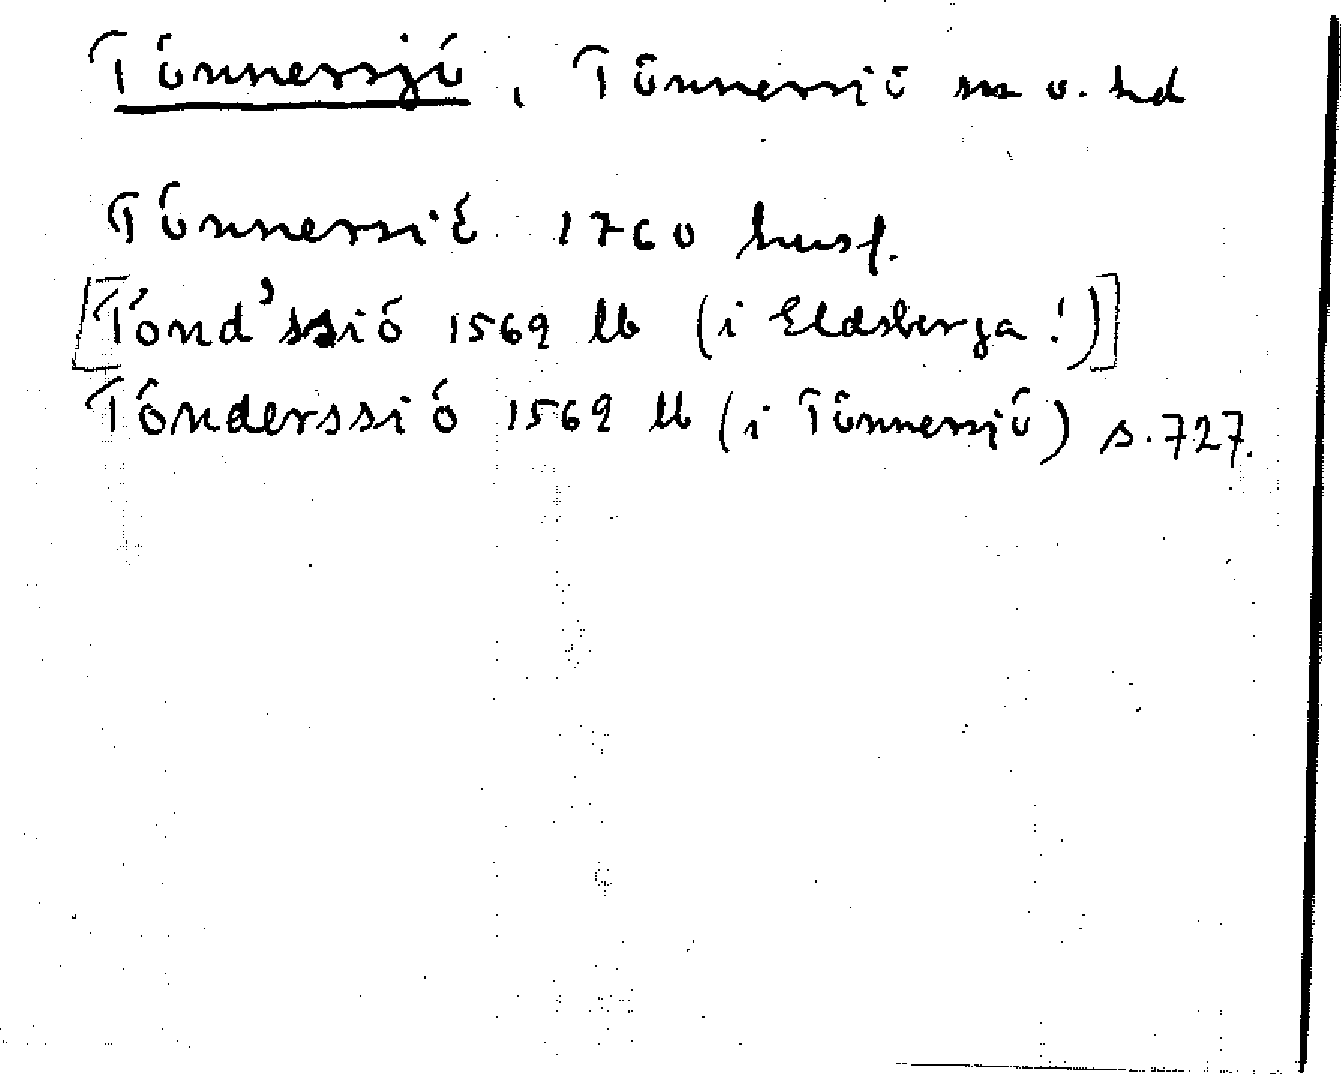 Tönnersjö, Tönnersjö sn o. hd
Tönnersiö 1760 husf.
[Tönd'ssiö 1569 lb (i Eldsberga!)]
Tönderssiö 1569 lb (i Tönnersjö) s.727.